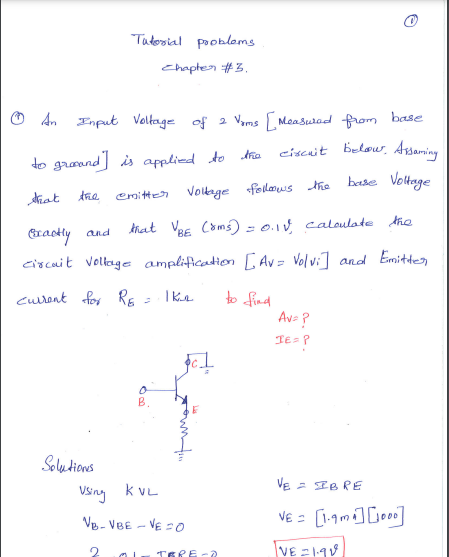 ①
Tutorial problems
Chapter #3.
① An Input Voltage of 2 Vrms [Measured from base
to ground] is applied to the circuit below. Assuming
that the emitter Voltage follows the base Voltage
Exactly and that VBE (rms) = 0.1V, calculate the
circuit Voltage amplification [Av = Vo/Vi] and Emitter
current for RE = 1KΩ to find
Av=?
IE=?
C
B.
E
Solutions
Using KVL
VB - VBE - VE = 0
VE = IERE
VE = [1.9mA][1000]
VE = 1.9V